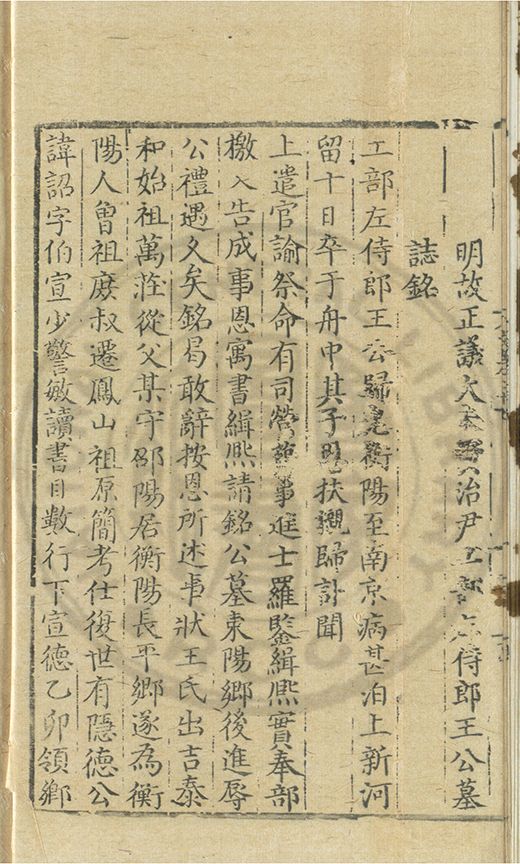 明故正議大夫資治尹工部左侍郎王公墓
誌銘
工部左侍郎王公歸老衡陽至南京病甚泊上新河
留十日卒于舟中其子恩扶櫬歸訃聞
上遣官諭祭命有司營葬事進士羅鑒緝熙實奉部
檄入告成事恩寓書緝熙請銘公墓東陽鄉後進辱
公禮遇久矣銘曷敢辭按恩所述事狀王氏出吉泰
和始祖萬荘從父某守邵陽居衡陽長平鄉遂為衡
陽人曾祖庚叔遷鳳山祖原簡考仕復世有隱德公
諱詔字伯宣少警敏讀書目數行下宣德乙卯領鄉